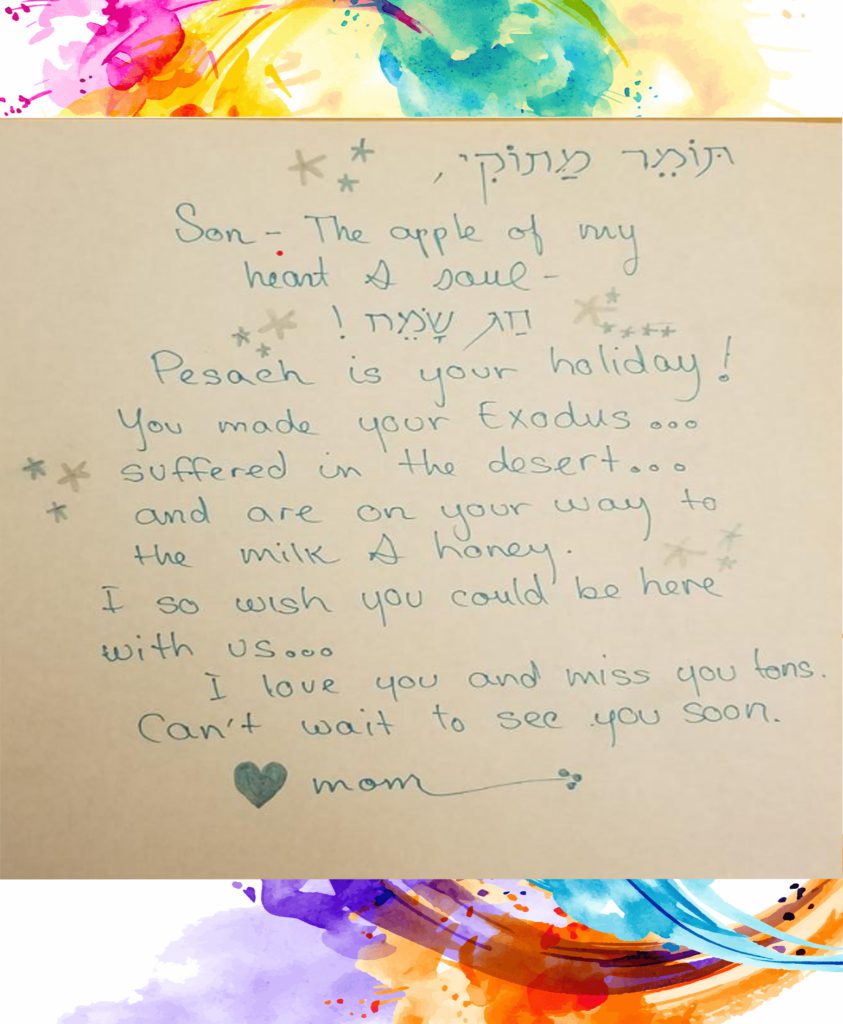 תּוֹמֵר מַתוֹקִי,
Son - The apple of my
heart & soul -
חַג שָׂמֵחַ !
Pesach is your holiday!
You made your Exodus...
suffered in the desert...
and are on your way to
the milk & honey.
I so wish you could be here
with us...
I love you and miss you tons.
Can't wait to see you soon.
mom